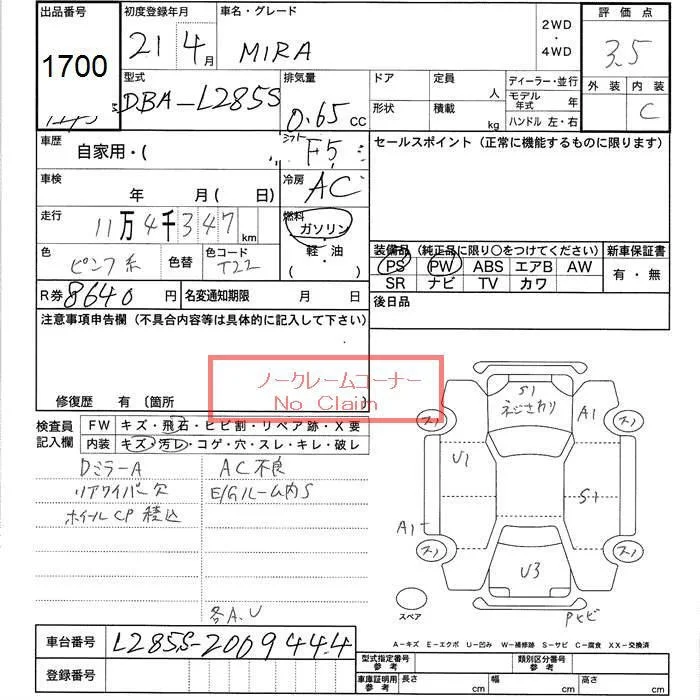 出品番号 初度登録年月 車名・グレード 2WD・4WD 評価点
1700 21 4月 MIRA 3.5
外装 内装 C
型式 排気量 ドア 定員 人 ディーラー・並行
DBA-L285S 0.65 CC 形状 積載 kg モデル年式 年
ハンドル 左・右
車歴 自家用・( シフト F5 セールスポイント (正常に機能するものに限ります)
車検 年 月 ( 日) 冷房 AC
走行 11万4千347km 燃料 ガソリン・軽・油・( )
色 ピンク系 色替 色コード T22
装備品 (純正品に限り○をつけてください) 新車保証書
PS PW ABS エアB AW 有・無
SR ナビ TV カワ
R券 8640円 名変通知期限 月 日 後日品
注意事項申告欄 (不具合内容等は具体的に記入して下さい)
ノークレームコーナー
No Claim
修復歴 有 〔箇所
検査員記入欄 FW キズ・飛石・ヒビ割・リペア跡・X要
内装 キズ・汚レ・コゲ・穴・スレ・キレ・破レ
Dミラー A AC不良
リアワイパー欠 E/Gルーム内S
ホイールCP積込
各A.U
S1
ネジさわり
A1
U1
S1
A1
U3
スペア
車台番号 L285S-2009444
登録番号
A-キズ E-エクボ U-凹み W-補修跡 S-サビ C-腐食 XX-交換済
型式指定番号 参考 類別区分番号 参考
車庫証明用 参考 長さ cm 幅 cm 高さ cm